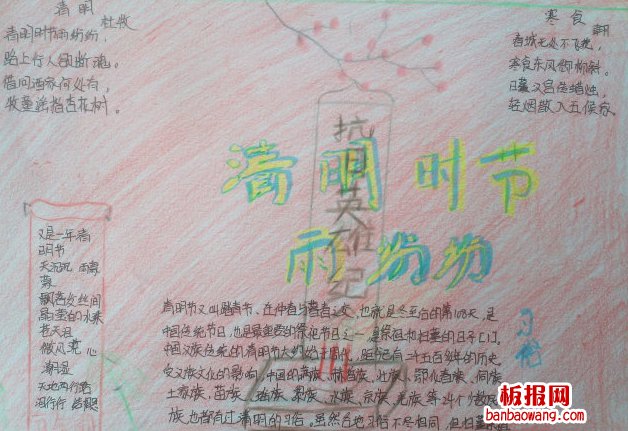 清明
杜牧
清明时节雨纷纷,
路上行人欲断魂。
借问酒家何处有,
牧童遥指杏花树。
寒食
韩翃
春城无处不飞花,
寒食东风御柳斜。
日暮汉宫传蜡烛,
轻烟散入五侯家。
抗日英雄纪
清明时节
雨纷纷
又是一年清
明节
飘落发丝间
晶莹的水珠
老天泪
微风亮 心
潮湿
天地两行
泪行行
清明节又叫踏青节、在仲春与暮春之交、也就是冬至后的第108天、是
中国传统节日、也是最重要的祭祀节日之一、是祭祖和扫墓的日子[1]。
中国汉族传统的清明节大约始于周代、距今已有二千五百多年的历史。
受汉族文化的影响、中国的满族、赫哲族、壮族、鄂伦春族、侗族、
土家族、苗族、瑶族、黎族、水族、京族、羌族等24个少数民
族、也都有过清明的习俗。虽然各地习俗不尽相同、但扫墓
习俗
板报网
banbaowang.com